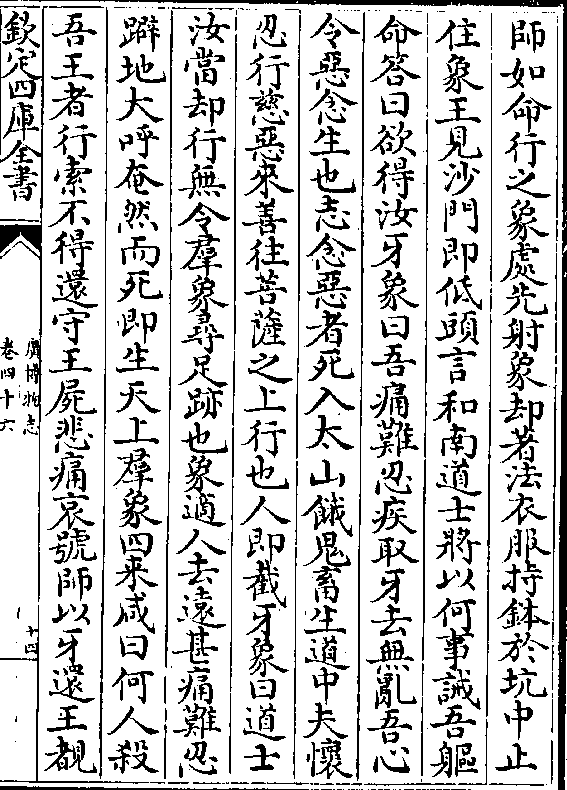 師如命行之象處先射象却著法衣服持鉢於坑中止
住象王見沙門即低頭言和南道士將以何事誡吾軀
命答曰欲得汝牙象曰吾痛難忍疾取牙去無亂吾心
令惡念生也志念惡者死入太山餓鬼畜生道中夫懷
忍行慈惡來善往菩薩之上行也人即截牙象曰道士
汝當却行無令羣象尋足跡也象適人去遠甚痛難忍
躃地大呼奄然而死即生天上羣象四来咸曰何人殺
吾王者行索不得還守王屍悲痛哀號師以牙還王覩
欽定四庫全書
廣博物志
卷四十六
十四